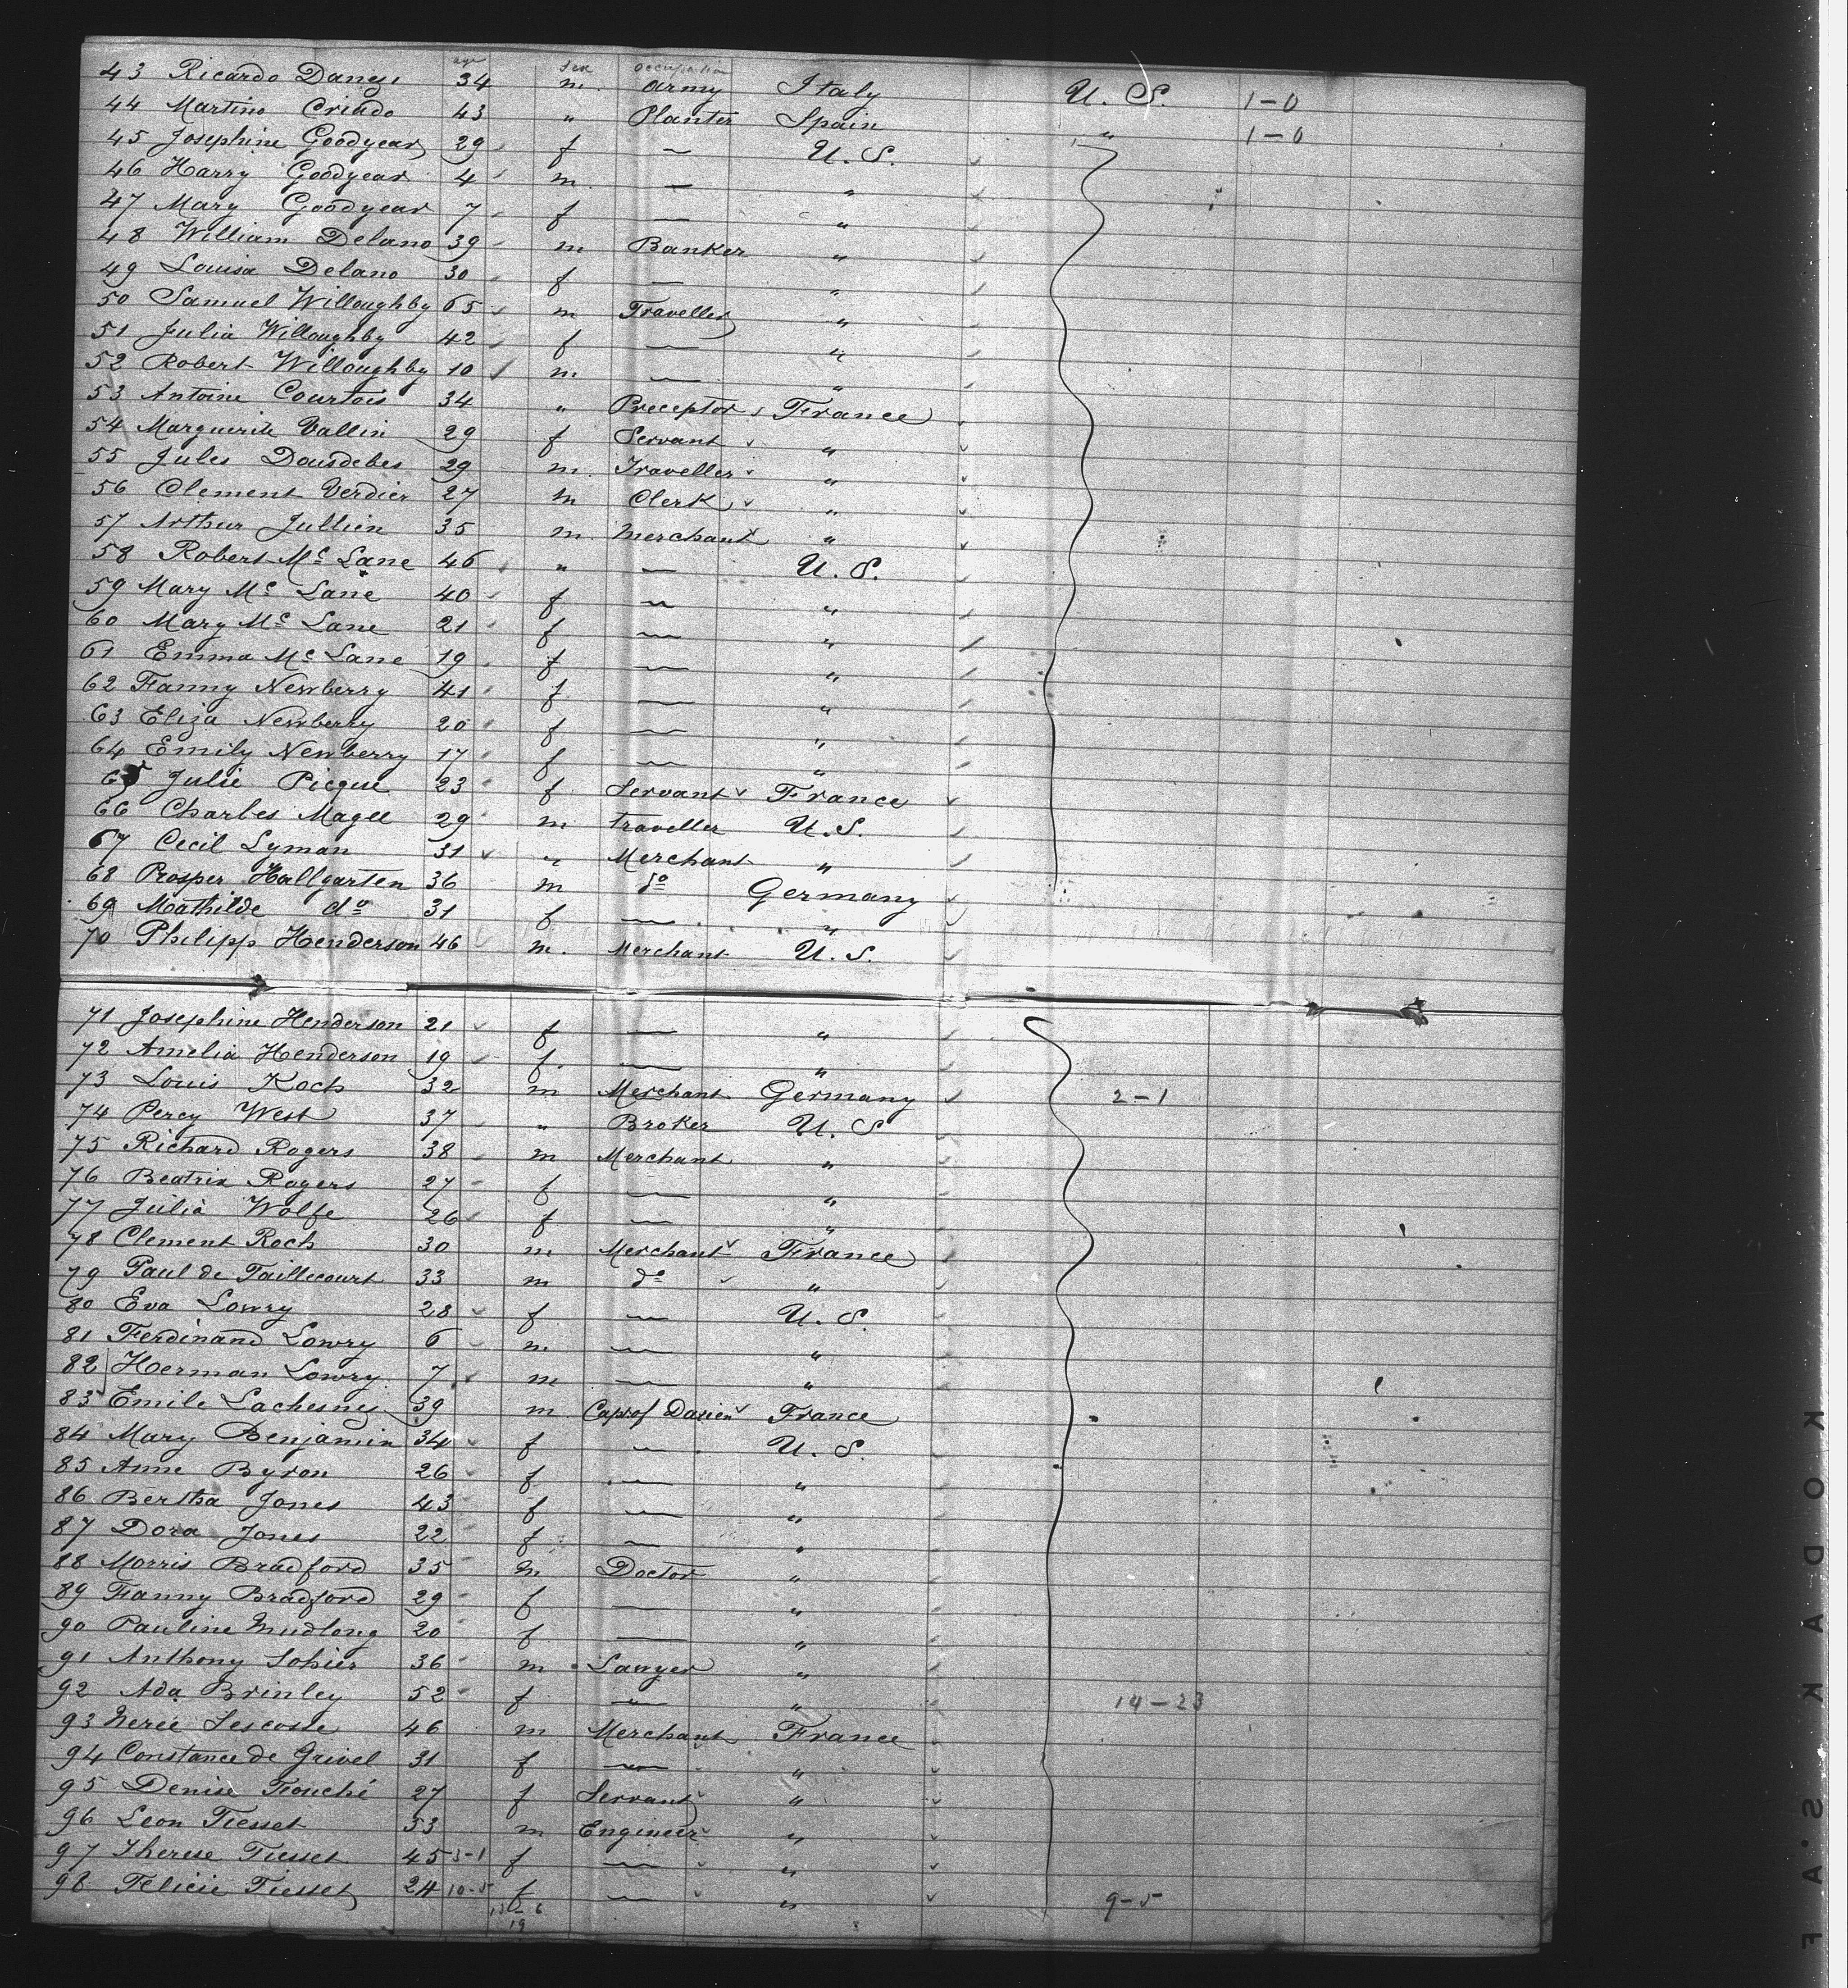 age sex occupation
43 Ricardo Danesi 34 m. army Italy U. S. 1-0
44 Martino Criado 43 " Planter Spain " 1-0
45 Josephine Goodyear 29 f — U. S.
46 Harry Goodyear 4 m. — "
47 Mary Goodyear 7 f — "
48 William Delano 39 m Banker "
49 Louisa Delano 30 f — "
50 Samuel Willoughby 65 m Traveller "
51 Julia Willoughby 42 f — "
52 Robert Willoughby 10 m — "
53 Antoine Courtois 34 " Preceptor France
54 Marguerite Vallin 29 f Servant "
55 Jules Dousdebes 29 m. Traveller "
56 Clement Verdier 27 m Clerk "
57 Arthur Jullien 35 m. Merchant "
58 Robert Mc Lane 46 " — U. S.
59 Mary Mc Lane 40 f — "
60 Mary Mc Lane 21 f — "
61 Emma Mc Lane 19 f — "
62 Fanny Newberry 41 f — "
63 Eliza Newberry 20 f — "
64 Emily Newberry 17 f — "
65 Julie Picque 23 f Servant France
66 Charles Magee 29 m traveller U. S.
67 Cecil Lyman 31 " Merchant "
68 Prosper Hallgarten 36 m do Germany
69 Mathilde do 31 f — "
70 Philipp Henderson 46 m. Merchant U. S.
71 Josephine Henderson 21 f — "
72 Amelia Henderson 19 f. — "
73 Louis Koch 32 m Merchant Germany 2-1
74 Percy West 37 " Broker U. S
75 Richard Rogers 38 m Merchant "
76 Beatrix Rogers 27 f — "
77 Julia Wolfe 26 f — "
78 Clement Roch 30 m Merchant France
79 Paul de Taillecourt 33 m do "
80 Eva Lowry 28 f — U. S.
81 Ferdinand Lowry 6 m — "
82 Herman Lowry 7 m — "
83 Emile Lachesnez 39 m Cap of Darien France
84 Mary Benjamin 34 f — U. S.
85 Anne Byron 26 f — "
86 Bertha Jones 43 f — "
87 Dora Jones 22 f — "
88 Morris Bradford 35 m Doctor "
89 Fanny Bradford 29 f — "
90 Pauline Mudlong 20 f — "
91 Anthony Sohier 36 m Lawyer "
92 Ada Brinley 52 f — " 14-23
93 Neree Lescoste 46 m Merchant France
94 Constance de Grivel 31 f — "
95 Denise Fouché 27 f Servant "
96 Leon Tiesset 53 m Engineer "
97 Therese Tiesset 45 3-1 f — "
98 Félicie Tiesset 24 10-5 f — " 9-5
13-6
19
KODAK S'AF